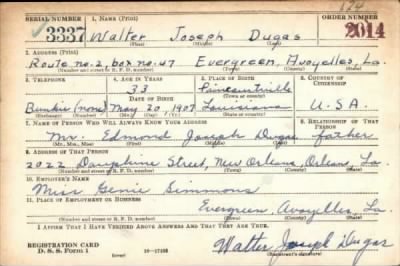 124
SERIAL NUMBER 1. NAME (Print) ORDER NUMBER
3337 Walter Joseph Dugas 2014
(First) (Middle) (Last)
2. ADDRESS (Print)
Route no. 2, box no. 47 Evergreen, Avoyelles, La.
(Number and street or R. F. D. number) (Town) (County) (State)
3. TELEPHONE 4. AGE IN YEARS 5. PLACE OF BIRTH 6. COUNTRY OF CITIZENSHIP
33
DATE OF BIRTH
Bunkie (none) May 20, 1907 Louisiana U.S.A.
(Exchange) (Number) (Mo.) (Day) (Yr.) (State or country)
7. NAME OF PERSON WHO WILL ALWAYS KNOW YOUR ADDRESS 8. RELATIONSHIP OF THAT PERSON
Mr. Edmond Joseph Dugas father
(Mr., Mrs., Miss) (First) (Middle) (Last)
9. ADDRESS OF THAT PERSON
2022 Dauphine Street, New Orleans, Orleans, La.
(Number and street or R. F. D. number) (Town) (County) (State)
10. EMPLOYER'S NAME
Miss Genie Simmons
11. PLACE OF EMPLOYMENT OR BUSINESS
Evergreen, Avoyelles, La.
(Number and street or R. F. D. number) (Town) (County) (State)
I AFFIRM THAT I HAVE VERIFIED ABOVE ANSWERS AND THAT THEY ARE TRUE.
REGISTRATION CARD
D. S. S. Form 1 (over) 16-17105 Walter Joseph Dugas
(Registrant's signature)